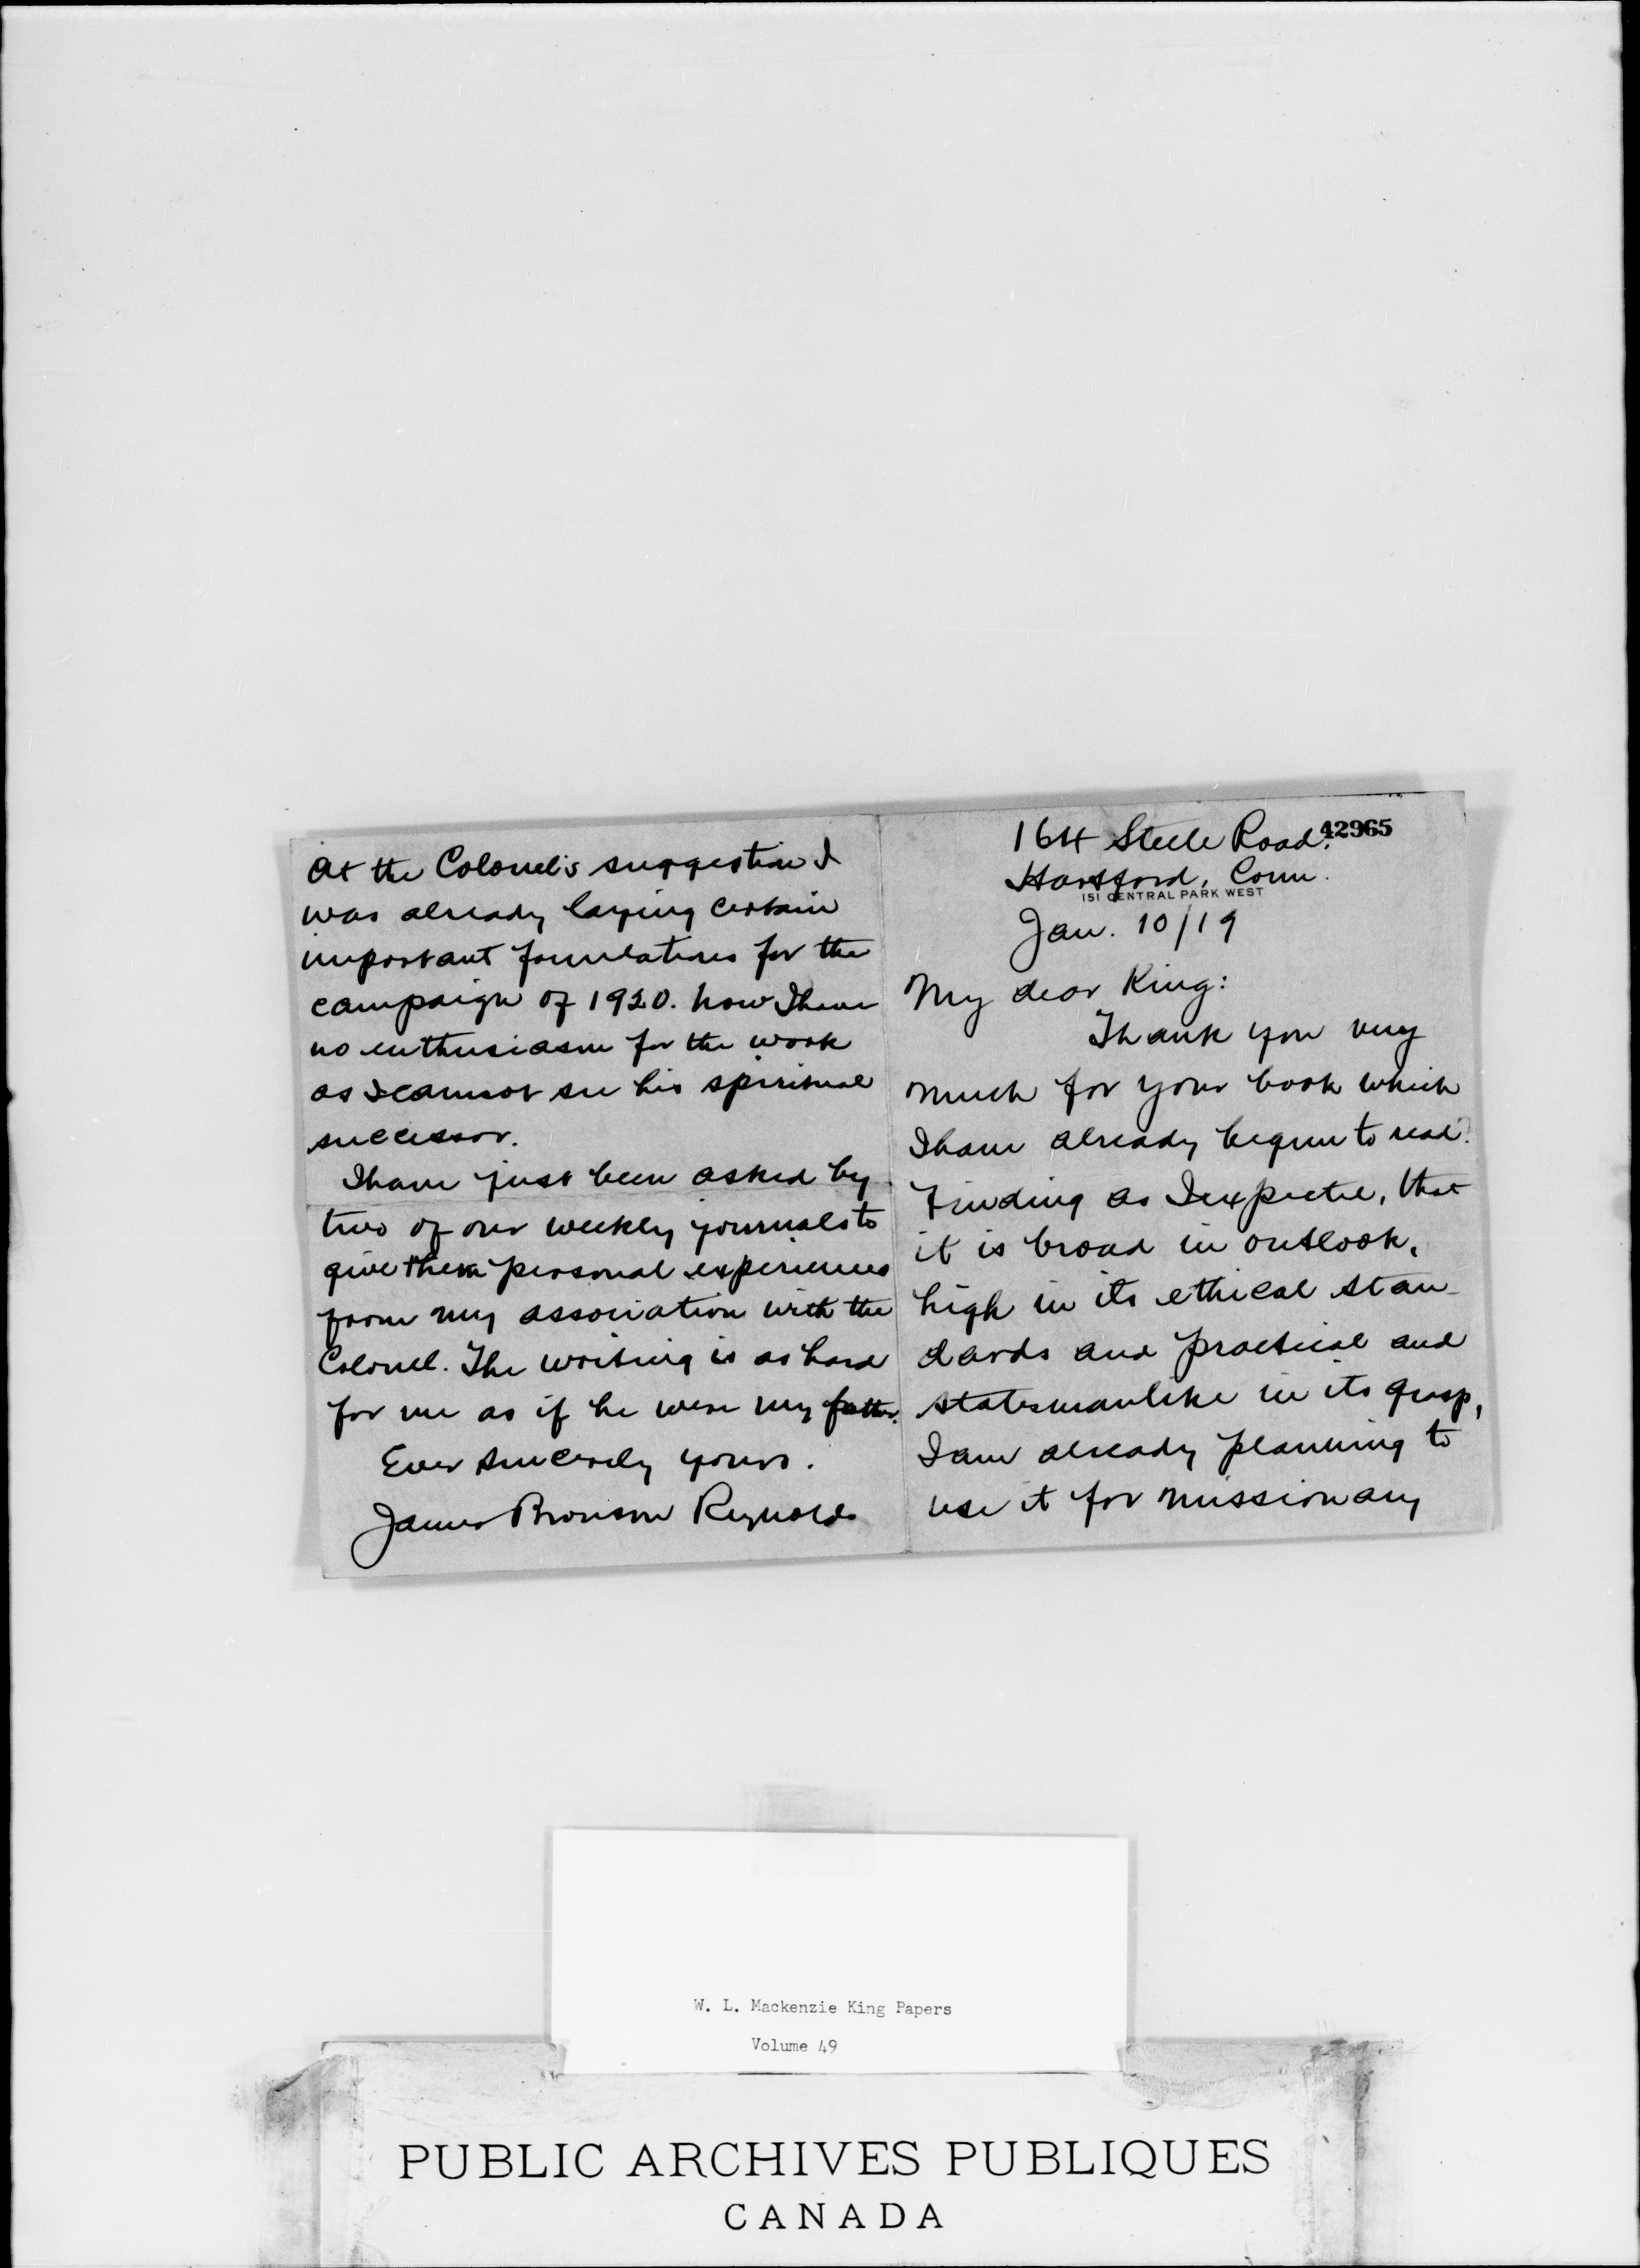 164 Steele Road.
42965
Hartford, Conn.
151 CENTRAL PARK WEST
Jan. 10/19
My dear King:
Thank you very
much for your book which
I have already begun to read.
Finding as I expected, that
it is broad in outlook,
high in its ethical stan-
dards and practical and
statesmanlike in its grasp,
I am already planning to
use it for missionary
At the Colonel's suggestion I
was already laying certain
important foundations for the
campaign of 1920. Now I have
no enthusiasm for the work
as I cannot see his spiritual
successor.
I have just been asked by
two of our weekly journals to
give them personal experiences
from my association with the
Colonel. The writing is as hard
for me as if he were my father.
Ever sincerely yours.
James Bronson Reynolds
W. L. Mackenzie King Papers
Volume 49
PUBLIC ARCHIVES PUBLIQUES
CANADA